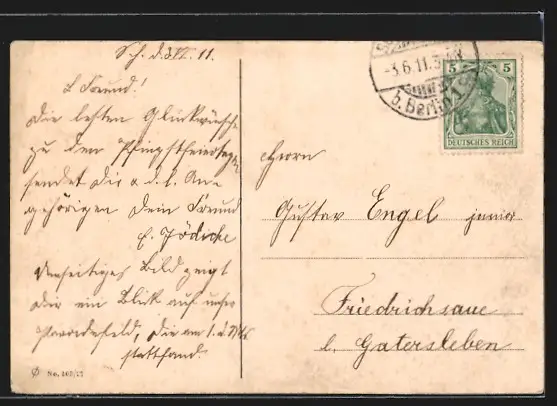 Sch. d. 3.VI. 11.
L. Freund!
Die besten Glückwünsche
zu den Pfingstfeiertagen
sendet Dir u. d. l. An-
gehörigen Dein Freund
E. Jädicke
Umseitiges Bild zeigt
Dir ein Blick auf unser
Paradefeld, die am 1. d. Mts.
stattfand.
No. 407/12
-3.6.11.
b. Berlin 1
5 5
DEUTSCHES REICH
Herrn
Gustav Engel junior
Friedrichsaue
b. Gatersleben